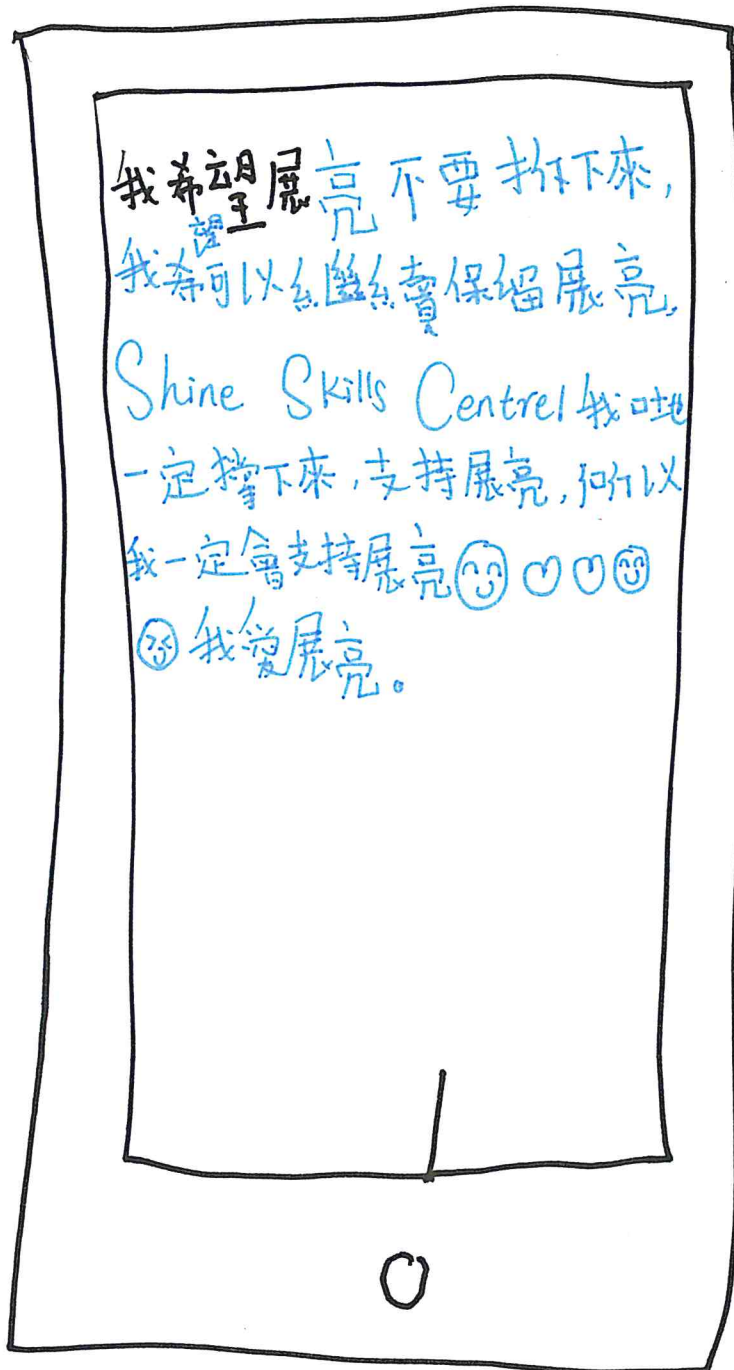 我希望展亮不要拆下來,
我希望可以繼續保留展亮,
Shine Skills Centre/我哋
一定撐下來,支持展亮,所以
我一定會支持展亮
我愛展亮。